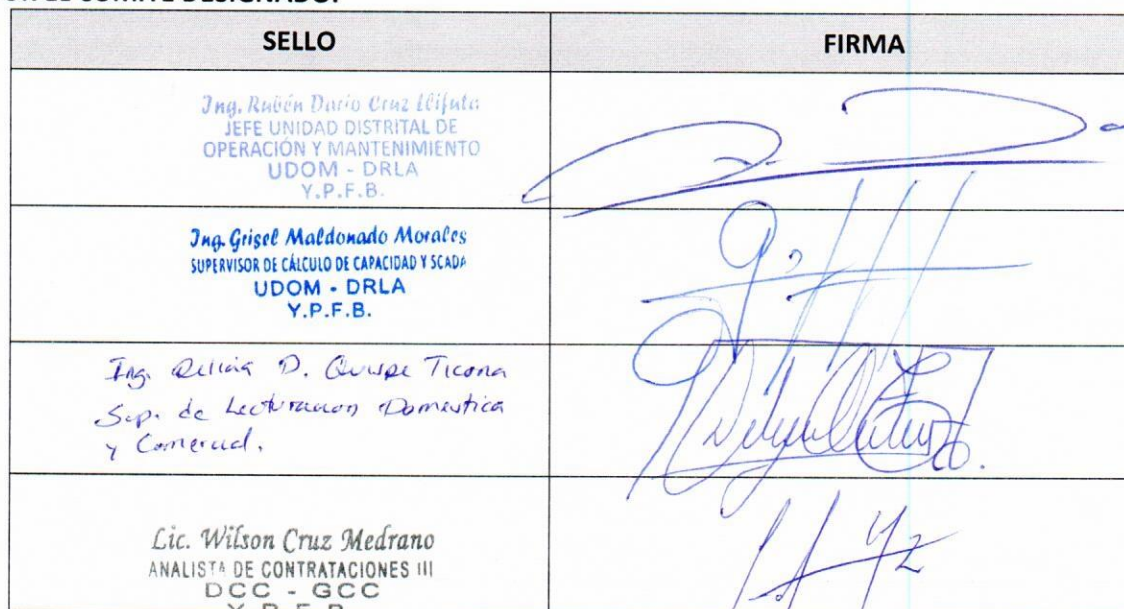 COMITÉ DESIGNADO:
SELLO
FIRMA
Ing. Rubén Dario Cruz
JEFE UNIDAD DISTRITAL DE
OPERACIÓN Y MANTENIMIENTO
UDOM - DRLA
Y.P.F.B.
Ing. Grisel Maldonado Morales
SUPERVISOR DE CÁLCULO DE CAPACIDAD Y SCADA
UDOM - DRLA
Y.P.F.B.
Ing. D. Quispe Ticona
Sup. de Domestica
y Comercial.
Lic. Wilson Cruz Medrano
ANALISTA DE CONTRATACIONES III
DCC - GCC
Y.P.F.B.